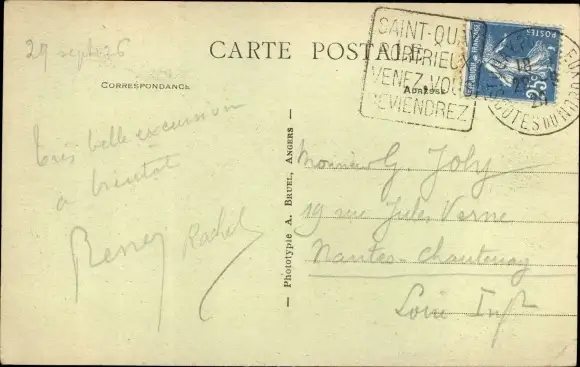 29 sept 26
CARTE POSTALE
CORRESPONDANCE
Adresse
SAINT-QU
PORTRIEUX
VENEZ VOUS
REVIENDREZ
POSTES
25c
COTES DU N
très belle excursion
a bientôt
Renée Rachel
Phototypie A. BRUEL, ANGERS
Monsieur G. Joly
19 rue Jules Verne
Nantes-Chantenay
Loire Infre